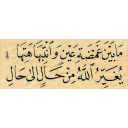 مَا بَيْنَ غَمْضَةِ عَيْنٍ وَٱنْتِبَاهَتِهَا
يُغَيِّرُ ٱللَّهُ مِنْ حَالٍ إِلَى حَالِ